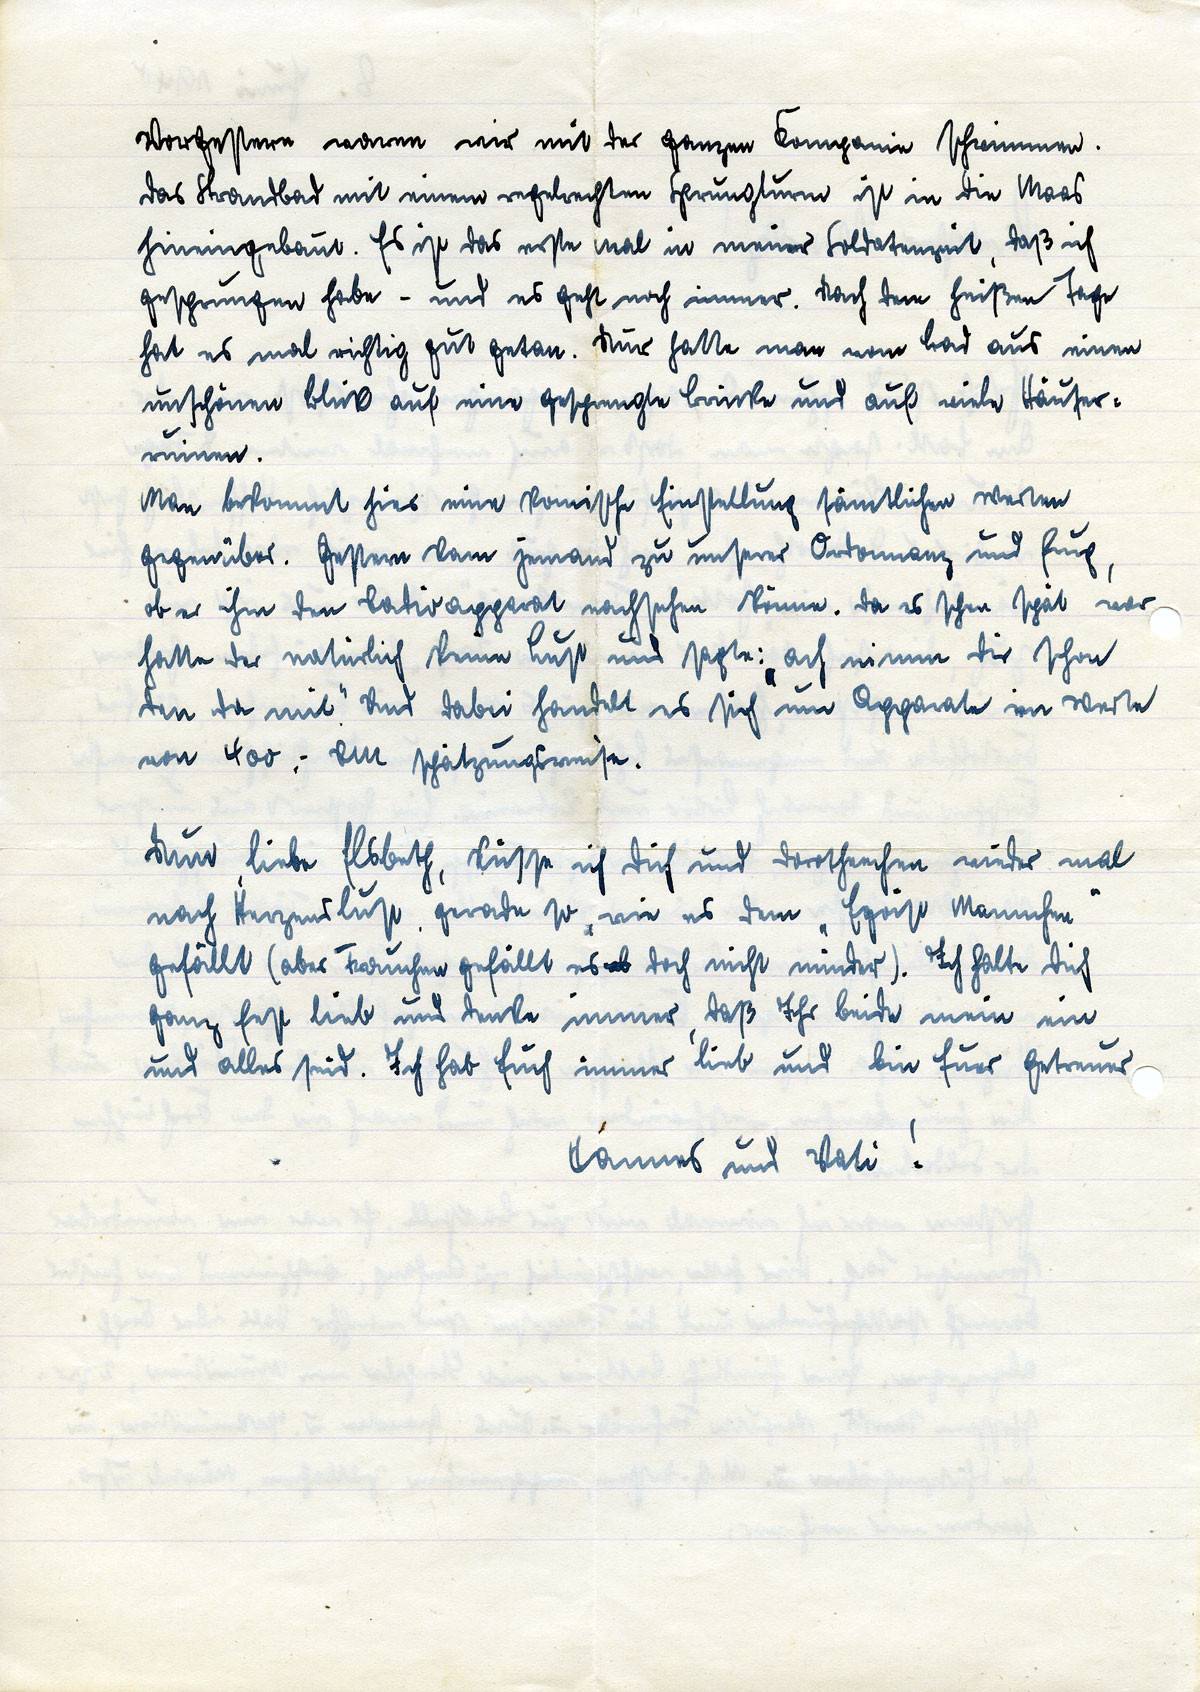 Vorgestern waren wir mit der ganzen Kompanie schwimmen.
Das Strandbad mit einem regelrechten Sprungturm ist in die Maas
hineingebaut. Es ist das erste Mal in meiner Soldatenzeit, daß ich
gesprungen habe - und es geht noch immer. Nach dem heißen Tage
hat es mal richtig gut getan. Nur hatte man vom Bad aus einen
unschönen Blick auf eine gesprengte Brücke und auf viele Häuser-
ruinen.
Man bekommt hier eine komische Einstellung sämtlichen Werten
gegenüber. Gestern kam jemand zu unserer Ordonnanz und frug,
ob er ihm den Radioapparat nachsehen könne. Da es schon spät war
hatte der natürlich keine Lust und sagte: „ach nimm dir schon
den da mit". Und dabei handelt es sich um Apparate im Werte
von 400,- RM schätzungsweise.
Nun, liebe Elsbeth, küsse ich Dich und Dorotheechen wieder mal
nach Herzenslust, gerade so, wie es dem „Egoist Mannchen"
gefällt (aber Frauchen gefällt es doch nicht minder). Ich halte Dich
ganz fest lieb und denke immer, daß Ihr beide mein ein
und alles seid. Ich hab Euch immer lieb und bin Euer getreuer
Hannes und Vati!